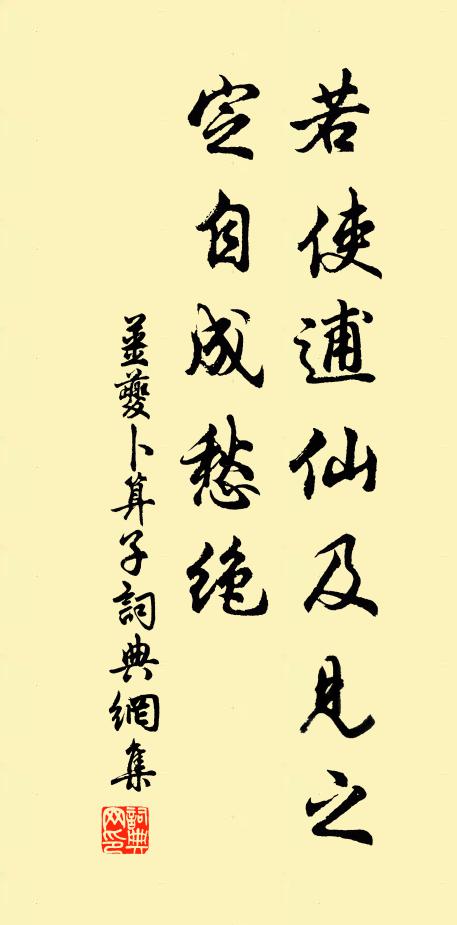 若使逋仙及見之
定自成愁絶
姜夔卜算子詞典網集
詞典
网印